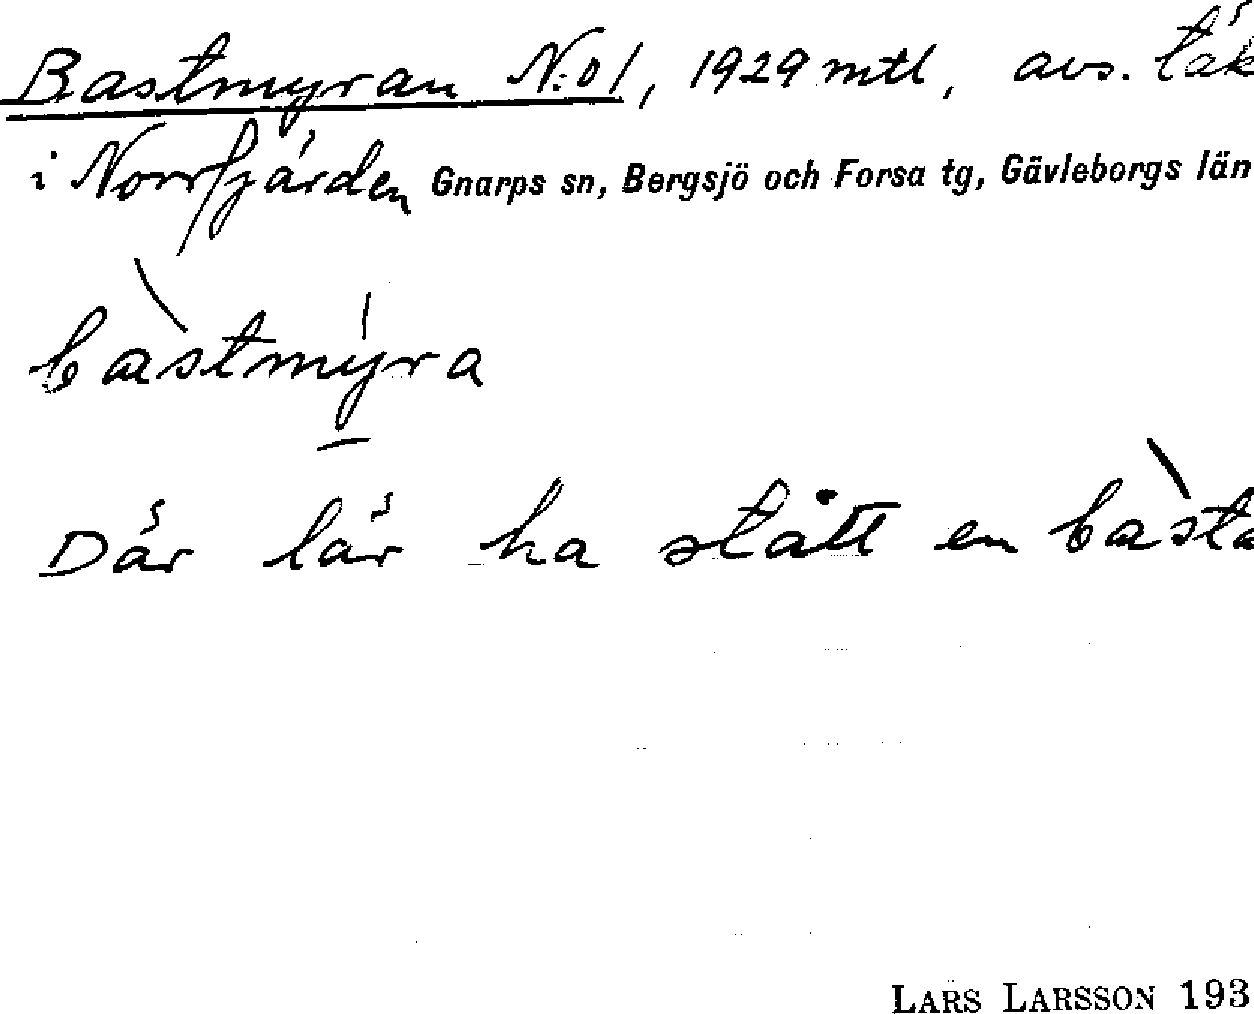 Bastmyran N:o 1, 1929 mtl, avs. läk
i Norrfjärden Gnarps sn, Bergsjö och Forsa tg, Gävleborgs län
bàstmýra
Där lär ha stått en bàsta
LARS LARSSON 193